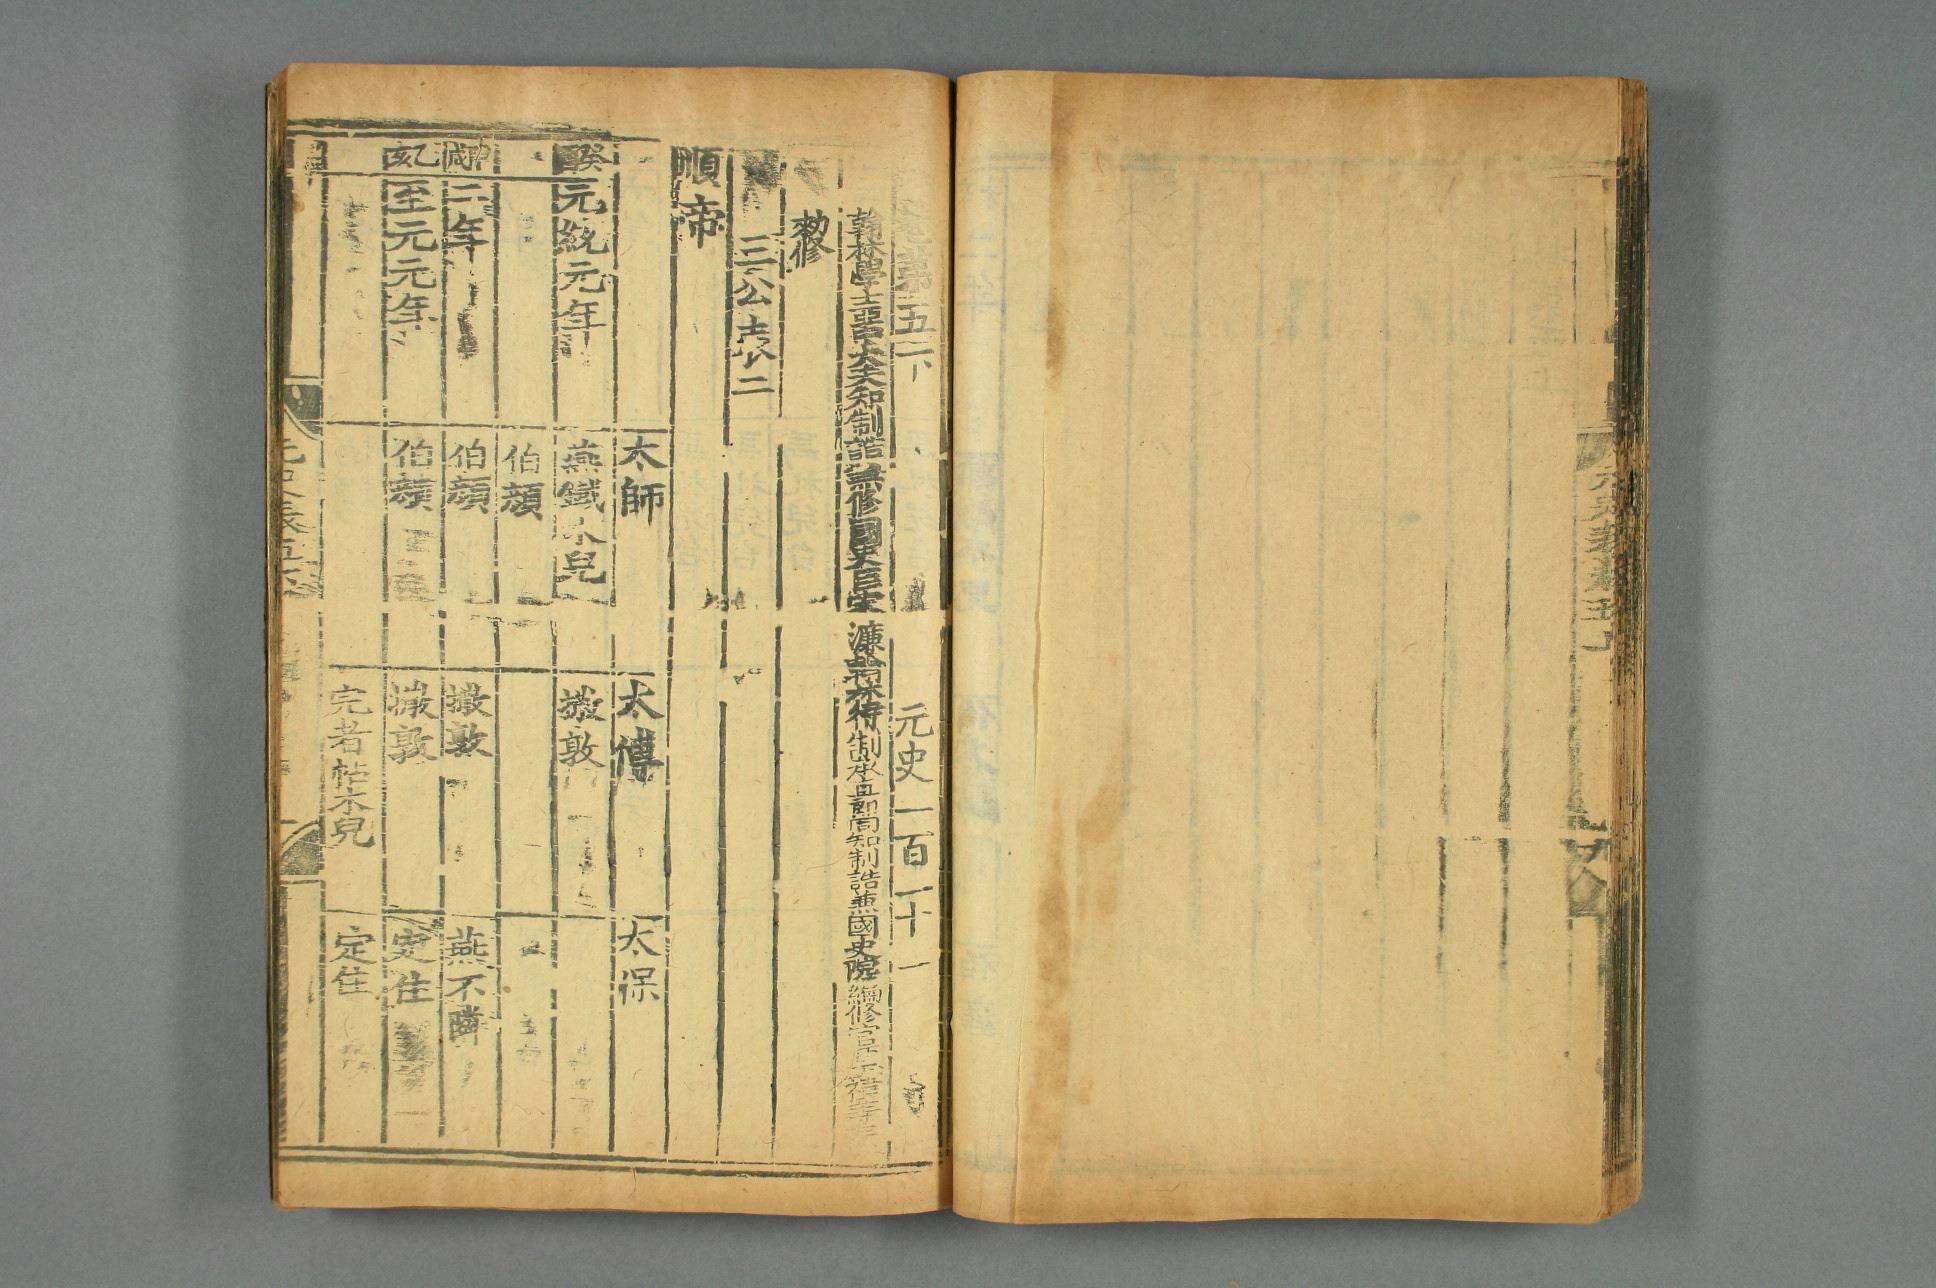 表第五下 元史一百一十一
翰林學士亞中大夫知制誥兼修國史臣宋濂 翰林待制承直郎同知制誥兼國史院編修官臣
勑修
三公表二
順帝
太師 太傅 太保
元統元年 燕鐵木兒 撒敦
伯顏
甲戌 二年 伯顏 撒敦 燕不隣
乙亥 至元元年 伯顏 撒敦 定住
完者帖木兒 定住
元史表五下